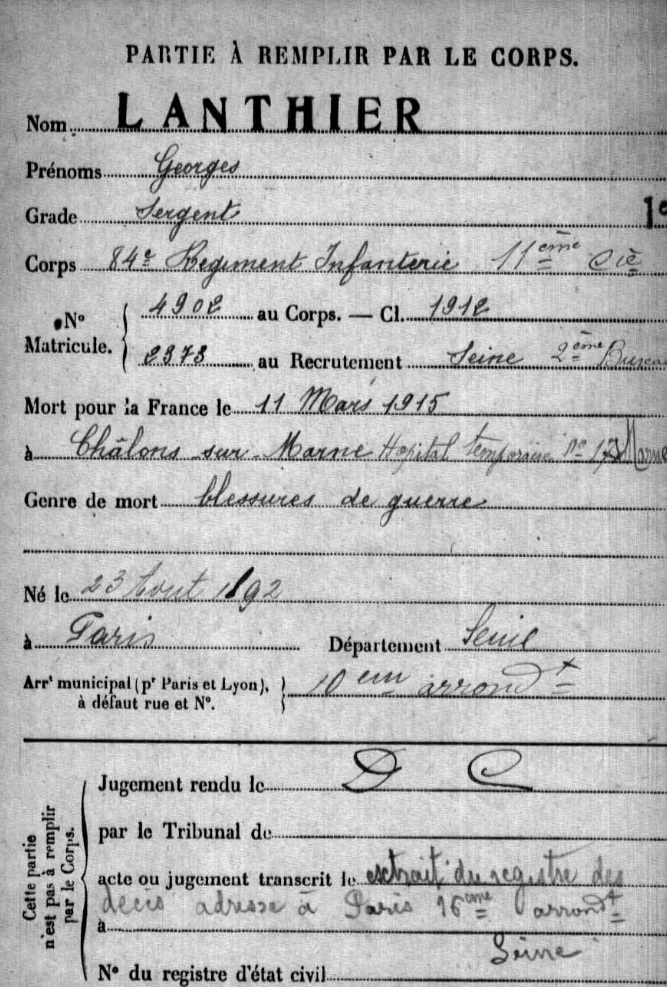 PARTIE À REMPLIR PAR LE CORPS.
Nom LANTHIER
Prénoms Georges
Grade Sergent
Corps 84e Regiment Infanterie 11ème Cie
No Matricule. 4902 au Corps. — Cl. 1912
2373 au Recrutement Seine 2ème Bureau
Mort pour la France le 11 Mars 1915
à Châlons sur Marne Hopital temporaire no 17 Marne
Genre de mort blessures de guerre
Né le 23 Aout 1892
à Paris Département Seine
Arrt municipal (pr Paris et Lyon), à défaut rue et No. 10em arrondt
Cette partie n'est pas à remplir par le Corps.
Jugement rendu le D C
par le Tribunal de
acte ou jugement transcrit le extrait du registre des
décès adresse à Paris 16eme arrondt
à Seine
No du registre d'état civil